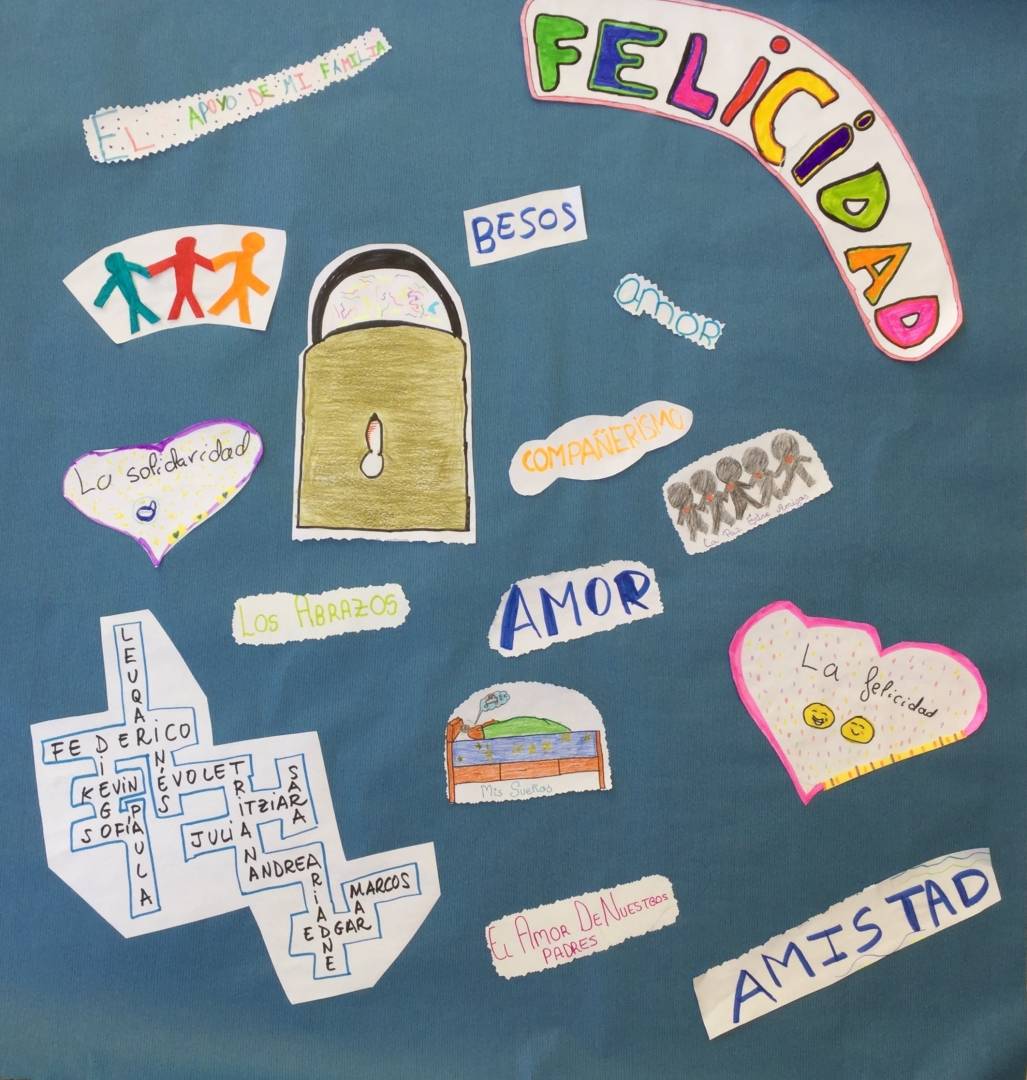 FELICIDAD
EL APOYO DE MI FAMILIA
BESOS
AMOR
COMPAÑERISMO
La solidaridad
La Paz Entre Amigos
LOS ABRAZOS
AMOR
La felicidad
Mis Sueños
LEUQAR
FEDERICO
DIEGO
KEVIN
INÉS
SOFÍA
PAULA
ÉVOLET
TRIANA
ITZIAR
SARA
JULIA
ANDREA
ARIADNE
MARCOS
MAR
EDGAR
El AMOR DE NUESTROS
PADRES
AMISTAD